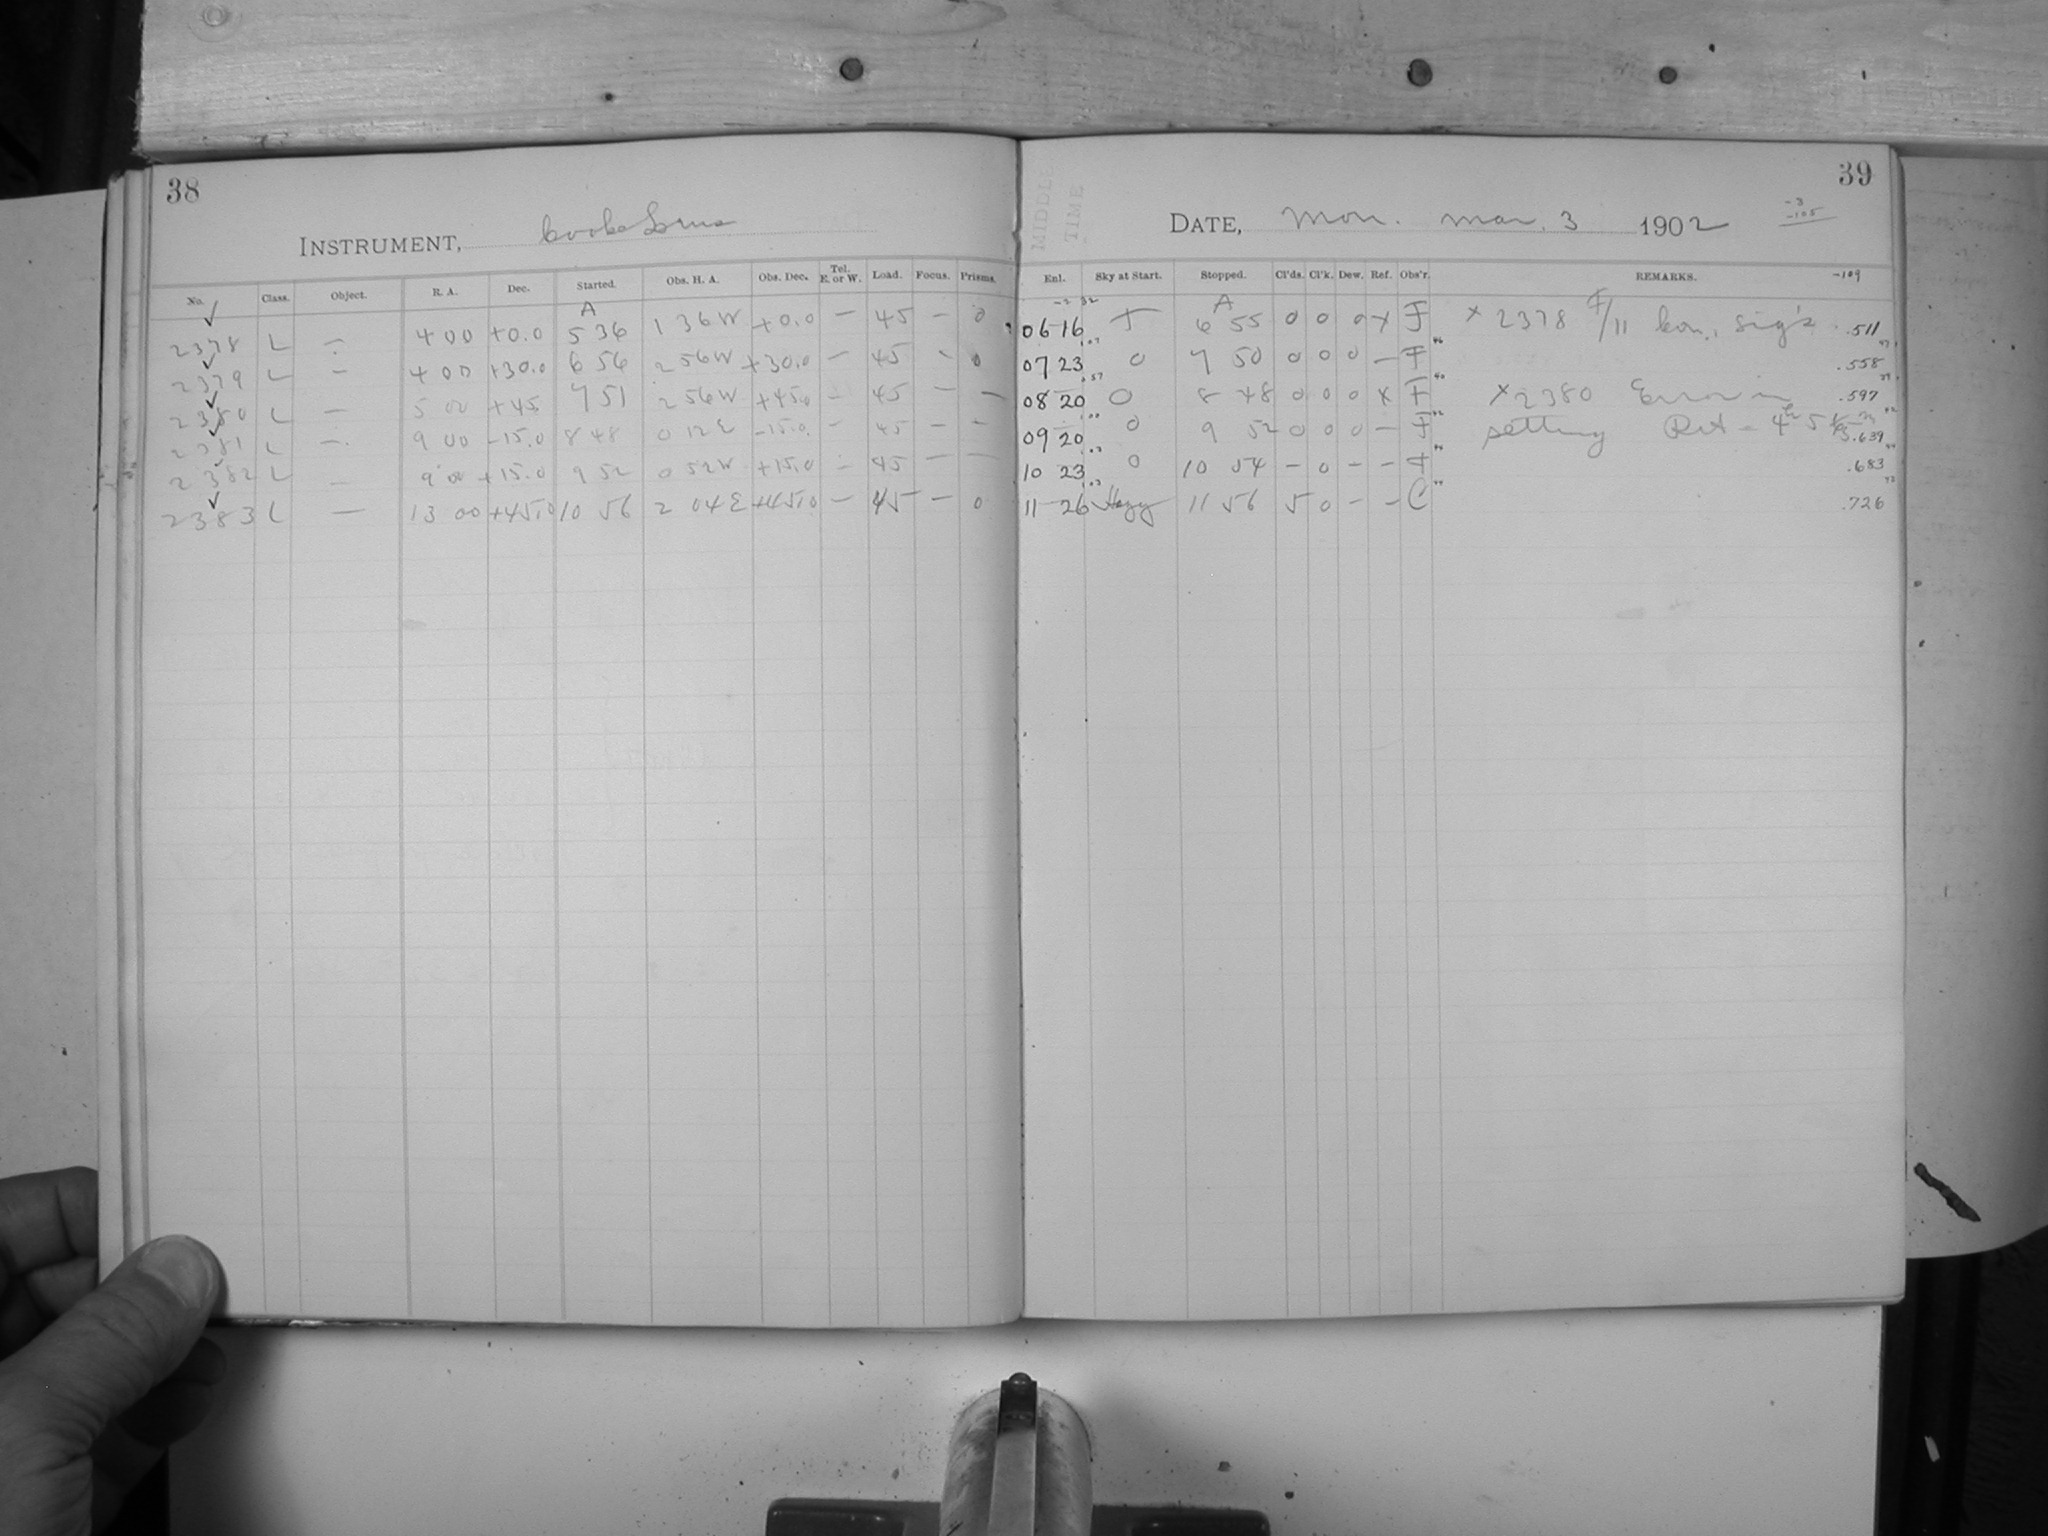 38
INSTRUMENT, Cooke Lens
No. Class. Object. R. A. Dec. Started. Obs. H. A. Obs. Dec. Tel. E. or W. Load. Focus. Prisms.
A
2378 L — 4 00 +0.0 5 36 1 36 W +0.0 — 45 — 0
2379 L — 4 00 +30.0 6 56 2 56 W +30.0 — 45 — 0
2380 L — 5 00 +45 7 51 2 56 W +45.0 — 45 — —
2381 L — 9 00 -15.0 8 48 0 12 E -15.0 — 45 — —
2382 L — 9 00 +15.0 9 52 0 52 W +15.0 — 45 — —
2383 L — 13 00 +45.0 10 56 2 04 E +45.0 — 45 — 0
39
MIDDLE
TIME
DATE, Mon. Mar. 3 1902
-3
-105
Enl. Sky at Start. Stopped. Cl'ds. Cl'k. Dew. Ref. Obs'r. REMARKS. -109
A
06 16 6 55 0 0 0 x F x 2378 F/11 Con. Sig's .511
07 23 0 7 50 0 0 0 — F .558
08 20 0 8 48 0 0 0 x F x 2380 Error in .597
09 20 0 9 52 0 0 0 — F setting RA = 4h 5 .639
10 23 0 10 54 — 0 — — F .683
11 26 Hazy 11 56 5 0 — — C .726